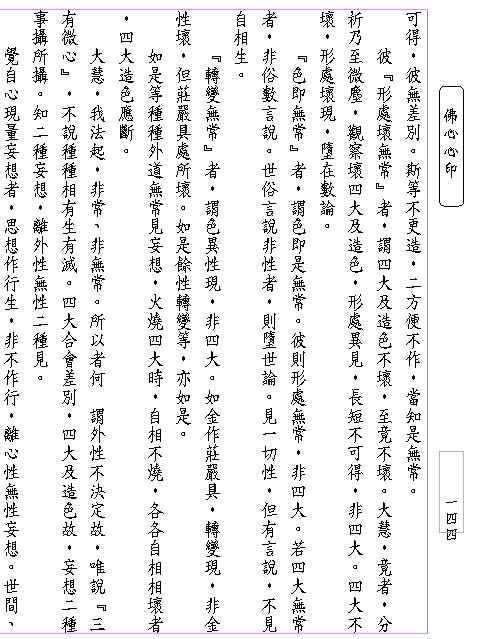 佛心心印
一四四
可得，彼無差別。斯等不更造，二方便不作，當知是無常。
彼『形處壞無常』者，謂四大及造色不壞，至竟不壞。大慧，竟者，分
析乃至微塵，觀察壞四大及造色，形處異見，長短不可得，非四大。四大不
壞，形處壞現，墮在數論。
『色即無常』者，謂色即是無常。彼則形處無常，非四大。若四大無常
者，非俗數言說。世俗言說非性者，則墮世論。見一切性，但有言說，不見
自相生。
『轉變無常』者，謂色異性現，非四大。如金作莊嚴具，轉變現，非金
性壞，但莊嚴具處所壞。如是餘性轉變等，亦如是。
如是等種種外道無常見妄想，火燒四大時，自相不燒，各各自相相壞者
，四大造色應斷。
大慧，我法起，非常、非無常。所以者何　謂外性不決定故，唯說『三
有微心』，不說種種相有生有滅。四大合會差別，四大及造色故，妄想二種
事攝所攝。知二種妄想，離外性無性二種見。
覺自心現量妄想者，思想作行生，非不作行，離心性無性妄想。世間、